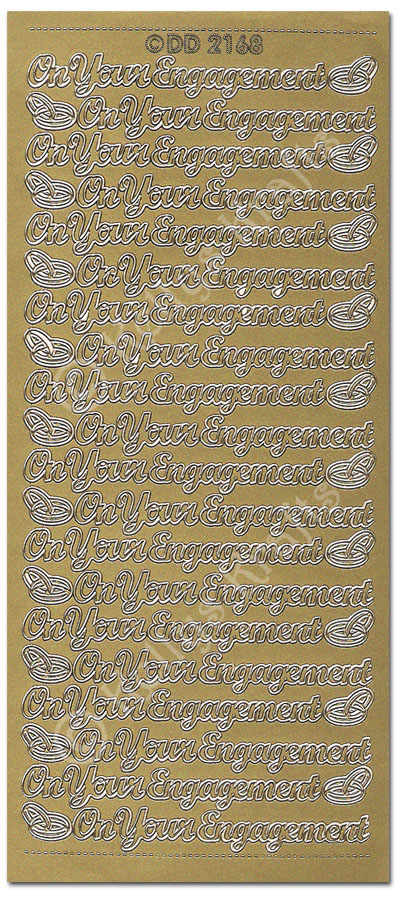 ©DD 2168
On Your Engagement
On Your Engagement
On Your Engagement
On Your Engagement
On Your Engagement
On Your Engagement
On Your Engagement
On Your Engagement
On Your Engagement
On Your Engagement
On Your Engagement
On Your Engagement
On Your Engagement
On Your Engagement
On Your Engagement
On Your Engagement
On Your Engagement
On Your Engagement
On Your Engagement
On Your Engagement